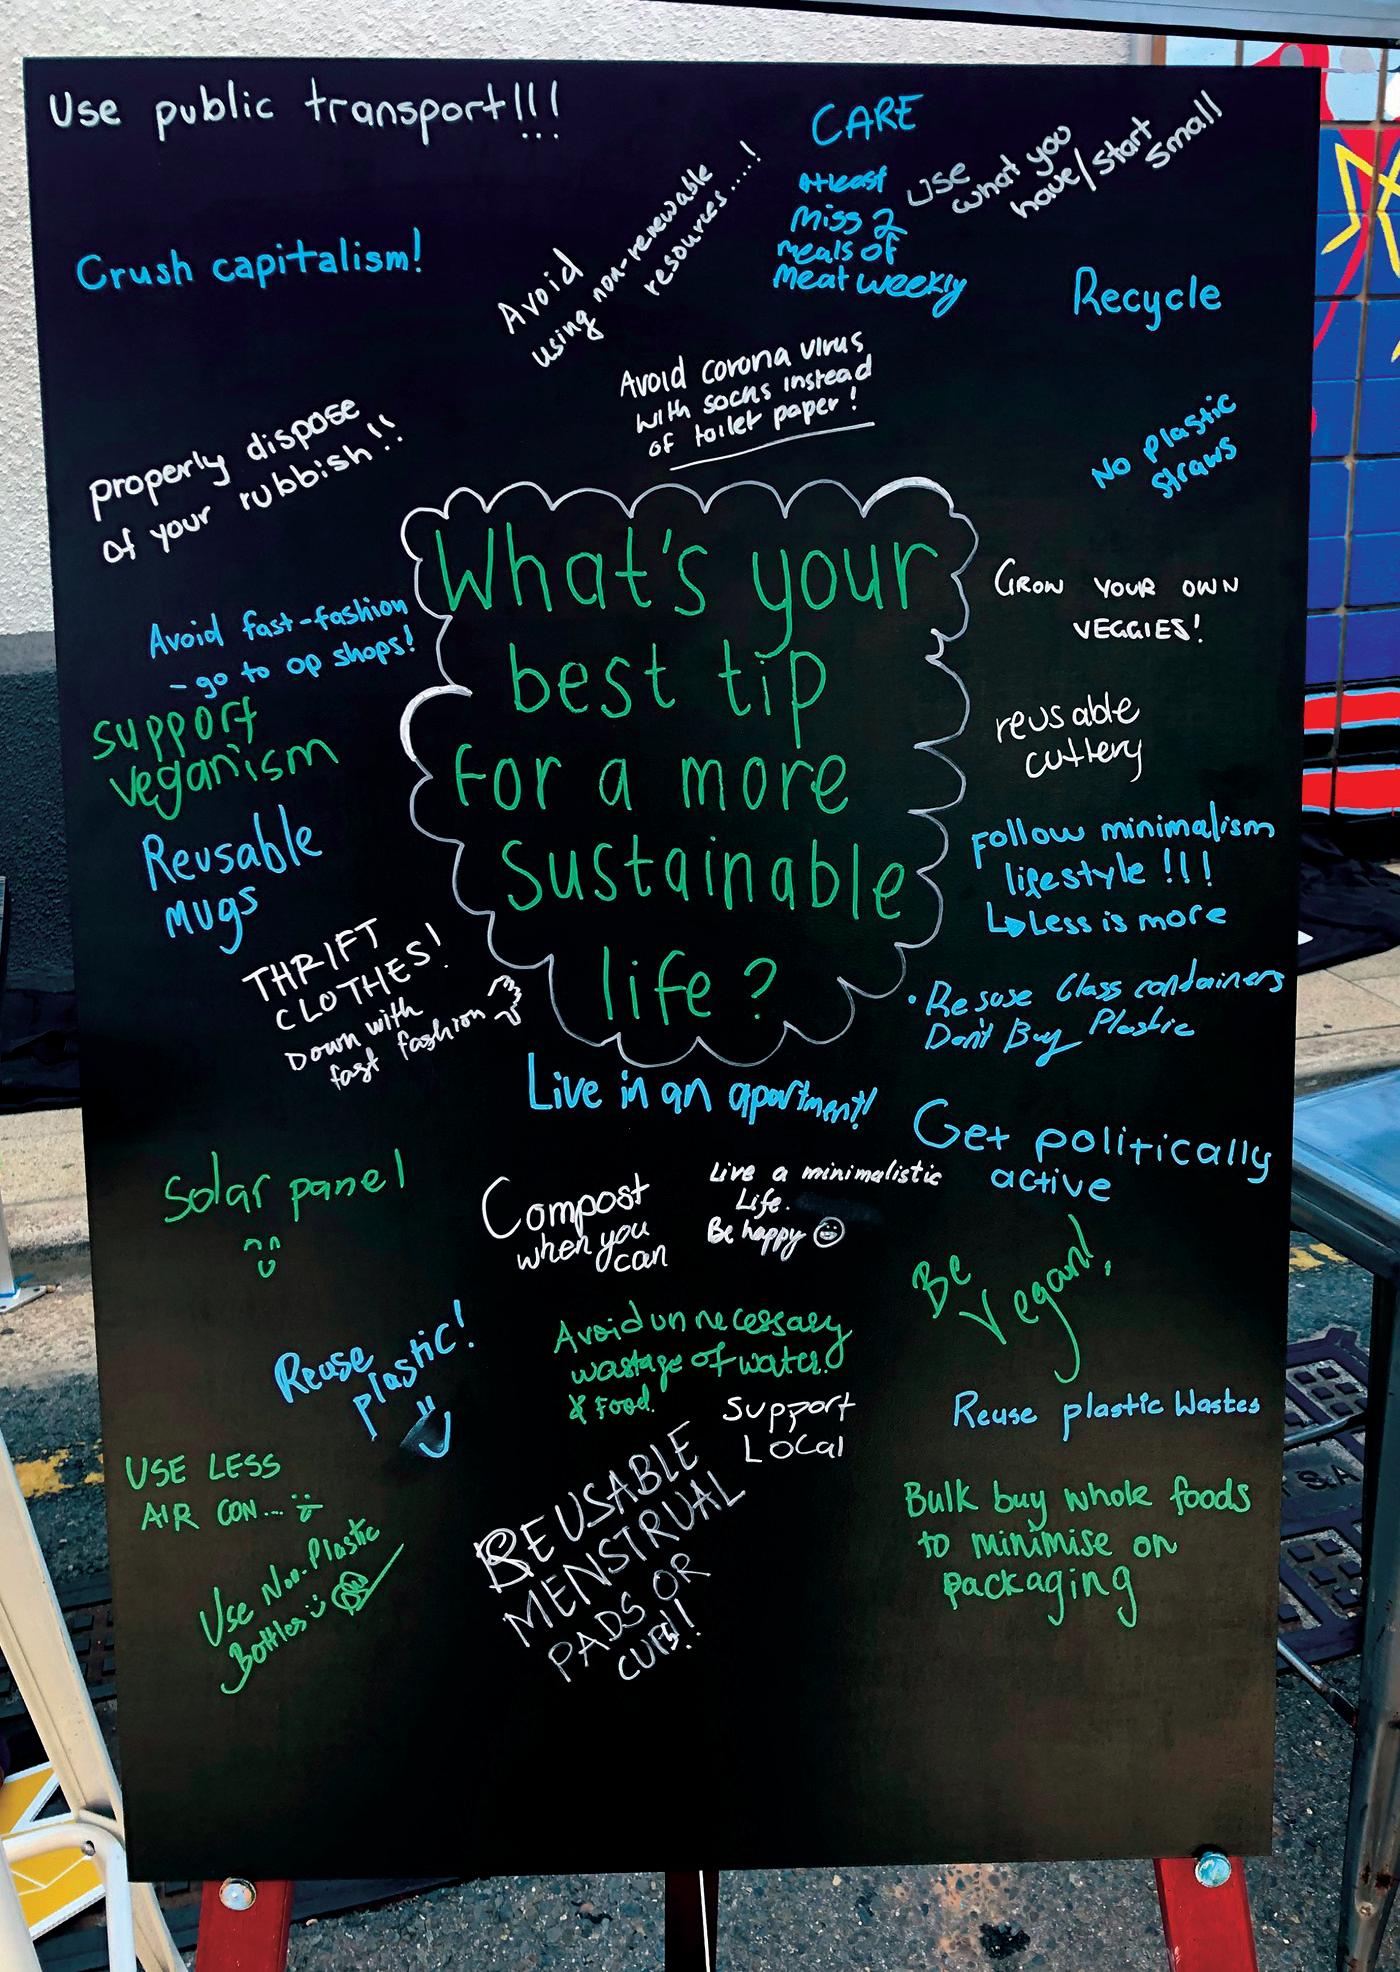 Use public transport!!!
CARE
Atleast
Miss 2
meals of
Meat weekly
Use
what you
have/start
small
Avoid
using non-renewable
resources.....!
Crush capitalism!
Recycle
Avoid corona virus
with socks instead
of toilet paper!
No plastic
straws
properly dispose
of your rubbish!!
What's your
best tip
for a more
Sustainable
life?
GROW YOUR OWN
VEGGIES!
Avoid fast-fashion
- go to op shops!
support
veganism
reusable
cutlery
Reusable
mugs
Follow minimalism
lifestyle !!!
Less is more
THRIFT
CLOTHES!
Down with
fast fashion
• Resuse Glass containers
Don't Buy Plastic
Live in an apartment!
Get politically
active
Solar panel
Compost
when you
can
Live a minimalistic
Life.
Be happy
Be
Vegan!
Reuse
plastic!
Avoid un necessary
wastage of water.
& Food.
Support
Local
Reuse plastic Wastes
USE LESS
AIR CON...
Use Non-Plastic
Bottles
REUSABLE
MENSTRUAL
PADS OR
CUPS!!
Bulk buy whole foods
to minimise on
packaging